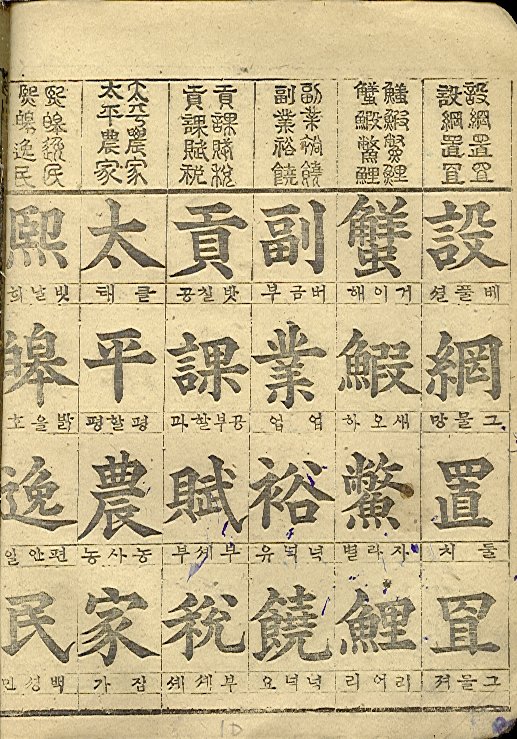 設網置罝
設網置罝
設 베풀셜
網 그물망
置 둘치
罝 그물져
蟹鰕鱉鯉
蟹鰕鱉鯉
蟹 거이해
鰕 새오하
鱉 자라별
鯉 리어리
副業裕饒
副業裕饒
副 버금부
業 업업
裕 넉넉유
饒 넉넉요
貢課賦稅
貢課賦稅
貢 밧칠공
課 공부할과
賦 부셰부
稅 부셰셰
太平農家
太平農家
太 클태
平 평할평
農 농사농
家 집가
熙皞逸民
熙皞逸民
熙 빗날희
皞 밝을호
逸 편안일
民 백셩민
10